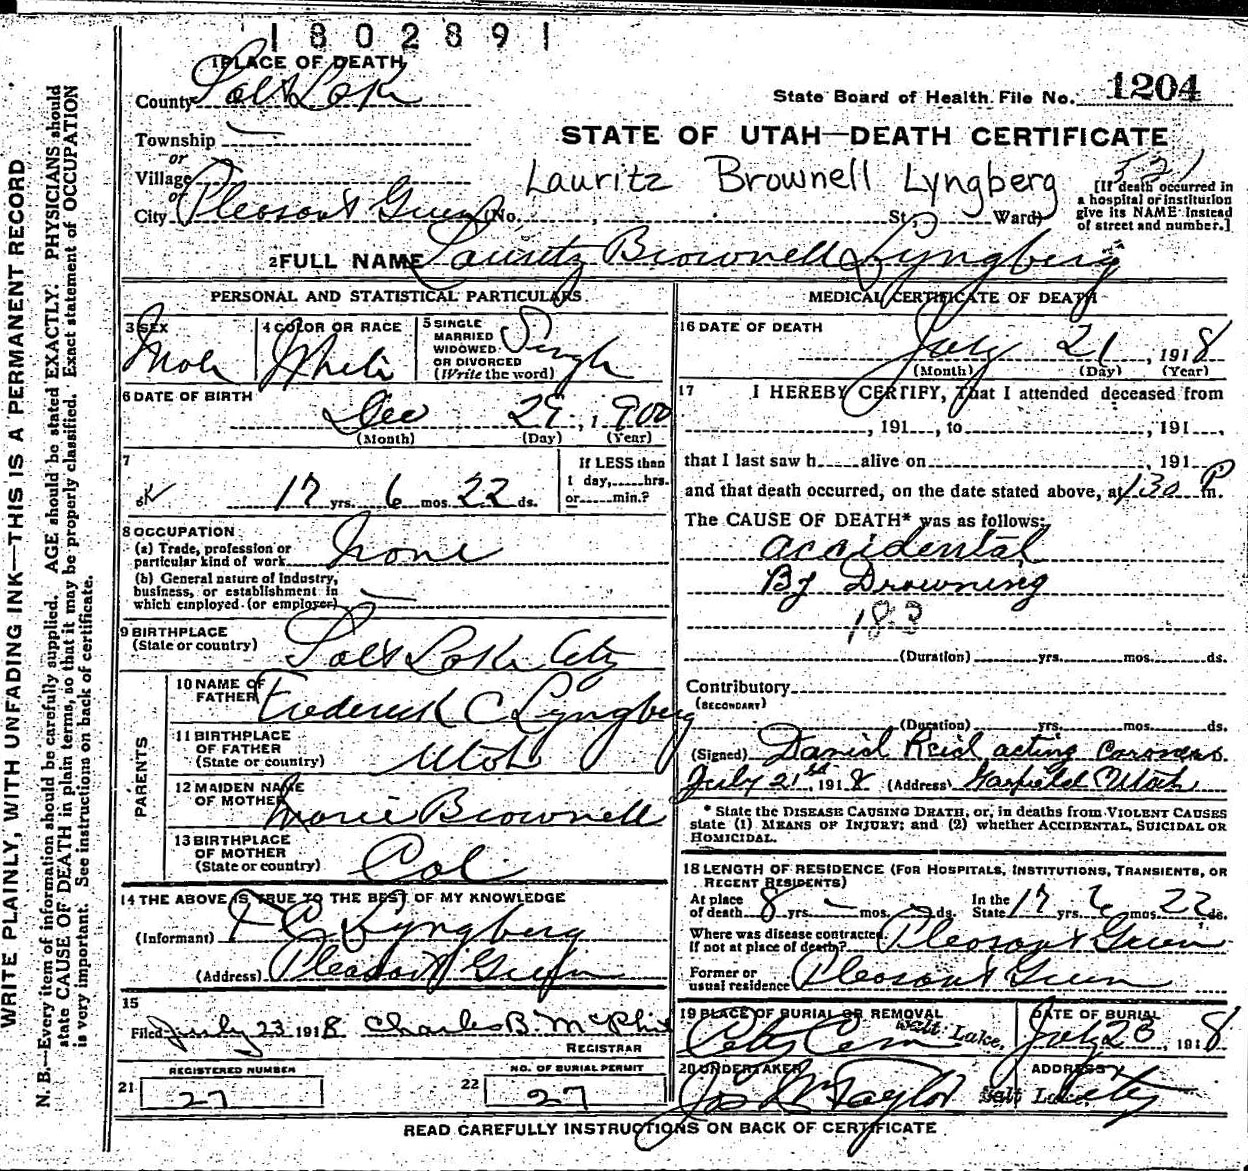 1802891
1 PLACE OF DEATH
County Salt Lake
State Board of Health File No. 1204
Township —
STATE OF UTAH—DEATH CERTIFICATE
or
Village
Lauritz Brownell Lyngberg
521
or
City Pleasant Green (No. , St., Ward)
[If death occurred in
a hospital or institution
give its NAME instead
of street and number.]
2 FULL NAME Lauritz Brownell Lyngberg
PERSONAL AND STATISTICAL PARTICULARS
3 SEX Male
4 COLOR OR RACE White
5 SINGLE
MARRIED
WIDOWED
OR DIVORCED
(Write the word) Single
6 DATE OF BIRTH
Dec 29, 1900
(Month) (Day) (Year)
7
17 yrs. 6 mos. 22 ds.
If LESS than
1 day, hrs.
or min.?
8 OCCUPATION
(a) Trade, profession or
particular kind of work None
(b) General nature of industry,
business, or establishment in
which employed (or employer) —
9 BIRTHPLACE
(State or country) Salt Lake City
PARENTS
10 NAME OF
FATHER Frederick C Lyngberg
11 BIRTHPLACE
OF FATHER
(State or country) Utah
12 MAIDEN NAME
OF MOTHER Marie Brownell
13 BIRTHPLACE
OF MOTHER
(State or country) Col
14 THE ABOVE IS TRUE TO THE BEST OF MY KNOWLEDGE
(Informant) F C Lyngberg
(Address) Pleasant Green
15
Filed July 23 1918 Charles B. McPhie
REGISTRAR
REGISTERED NUMBER
21 27
NO. OF BURIAL PERMIT
22 27
MEDICAL CERTIFICATE OF DEATH
16 DATE OF DEATH
July 21, 1918
(Month) (Day) (Year)
17 I HEREBY CERTIFY, That I attended deceased from
, 191 , to , 191 ,
that I last saw h alive on , 191
and that death occurred, on the date stated above, at 130 P m.
The CAUSE OF DEATH* was as follows:
accidental
By Drowning
183
(Duration) yrs. mos. ds.
Contributory
(SECONDARY)
(Duration) yrs. mos. ds.
(Signed) Daniel Reid acting Coroner D.
July 21st, 1918 (Address) Garfield Utah
* State the DISEASE CAUSING DEATH, or, in deaths from VIOLENT CAUSES
state (1) MEANS OF INJURY; and (2) whether ACCIDENTAL, SUICIDAL OR
HOMICIDAL.
18 LENGTH OF RESIDENCE (FOR HOSPITALS, INSTITUTIONS, TRANSIENTS, OR
RECENT RESIDENTS)
At place
of death 8 yrs. – mos. – ds.
In the
State 17 yrs. 6 mos. 22 ds.
Where was disease contracted
if not at place of death? Pleasant Green
Former or
usual residence Pleasant Green
19 PLACE OF BURIAL OR REMOVAL
City Cem Salt Lake.
DATE OF BURIAL
July 23, 1918
20 UNDERTAKER
Jos Wm Taylor
ADDRESS
Salt Lake City
READ CAREFULLY INSTRUCTIONS ON BACK OF CERTIFICATE
WRITE PLAINLY, WITH UNFADING INK—THIS IS A PERMANENT RECORD
N. B.—Every item of information should be carefully supplied. AGE should be stated EXACTLY. PHYSICIANS should
state CAUSE OF DEATH in plain terms, so that it may be properly classified. Exact statement of OCCUPATION
is very important. See instructions on back of certificate.